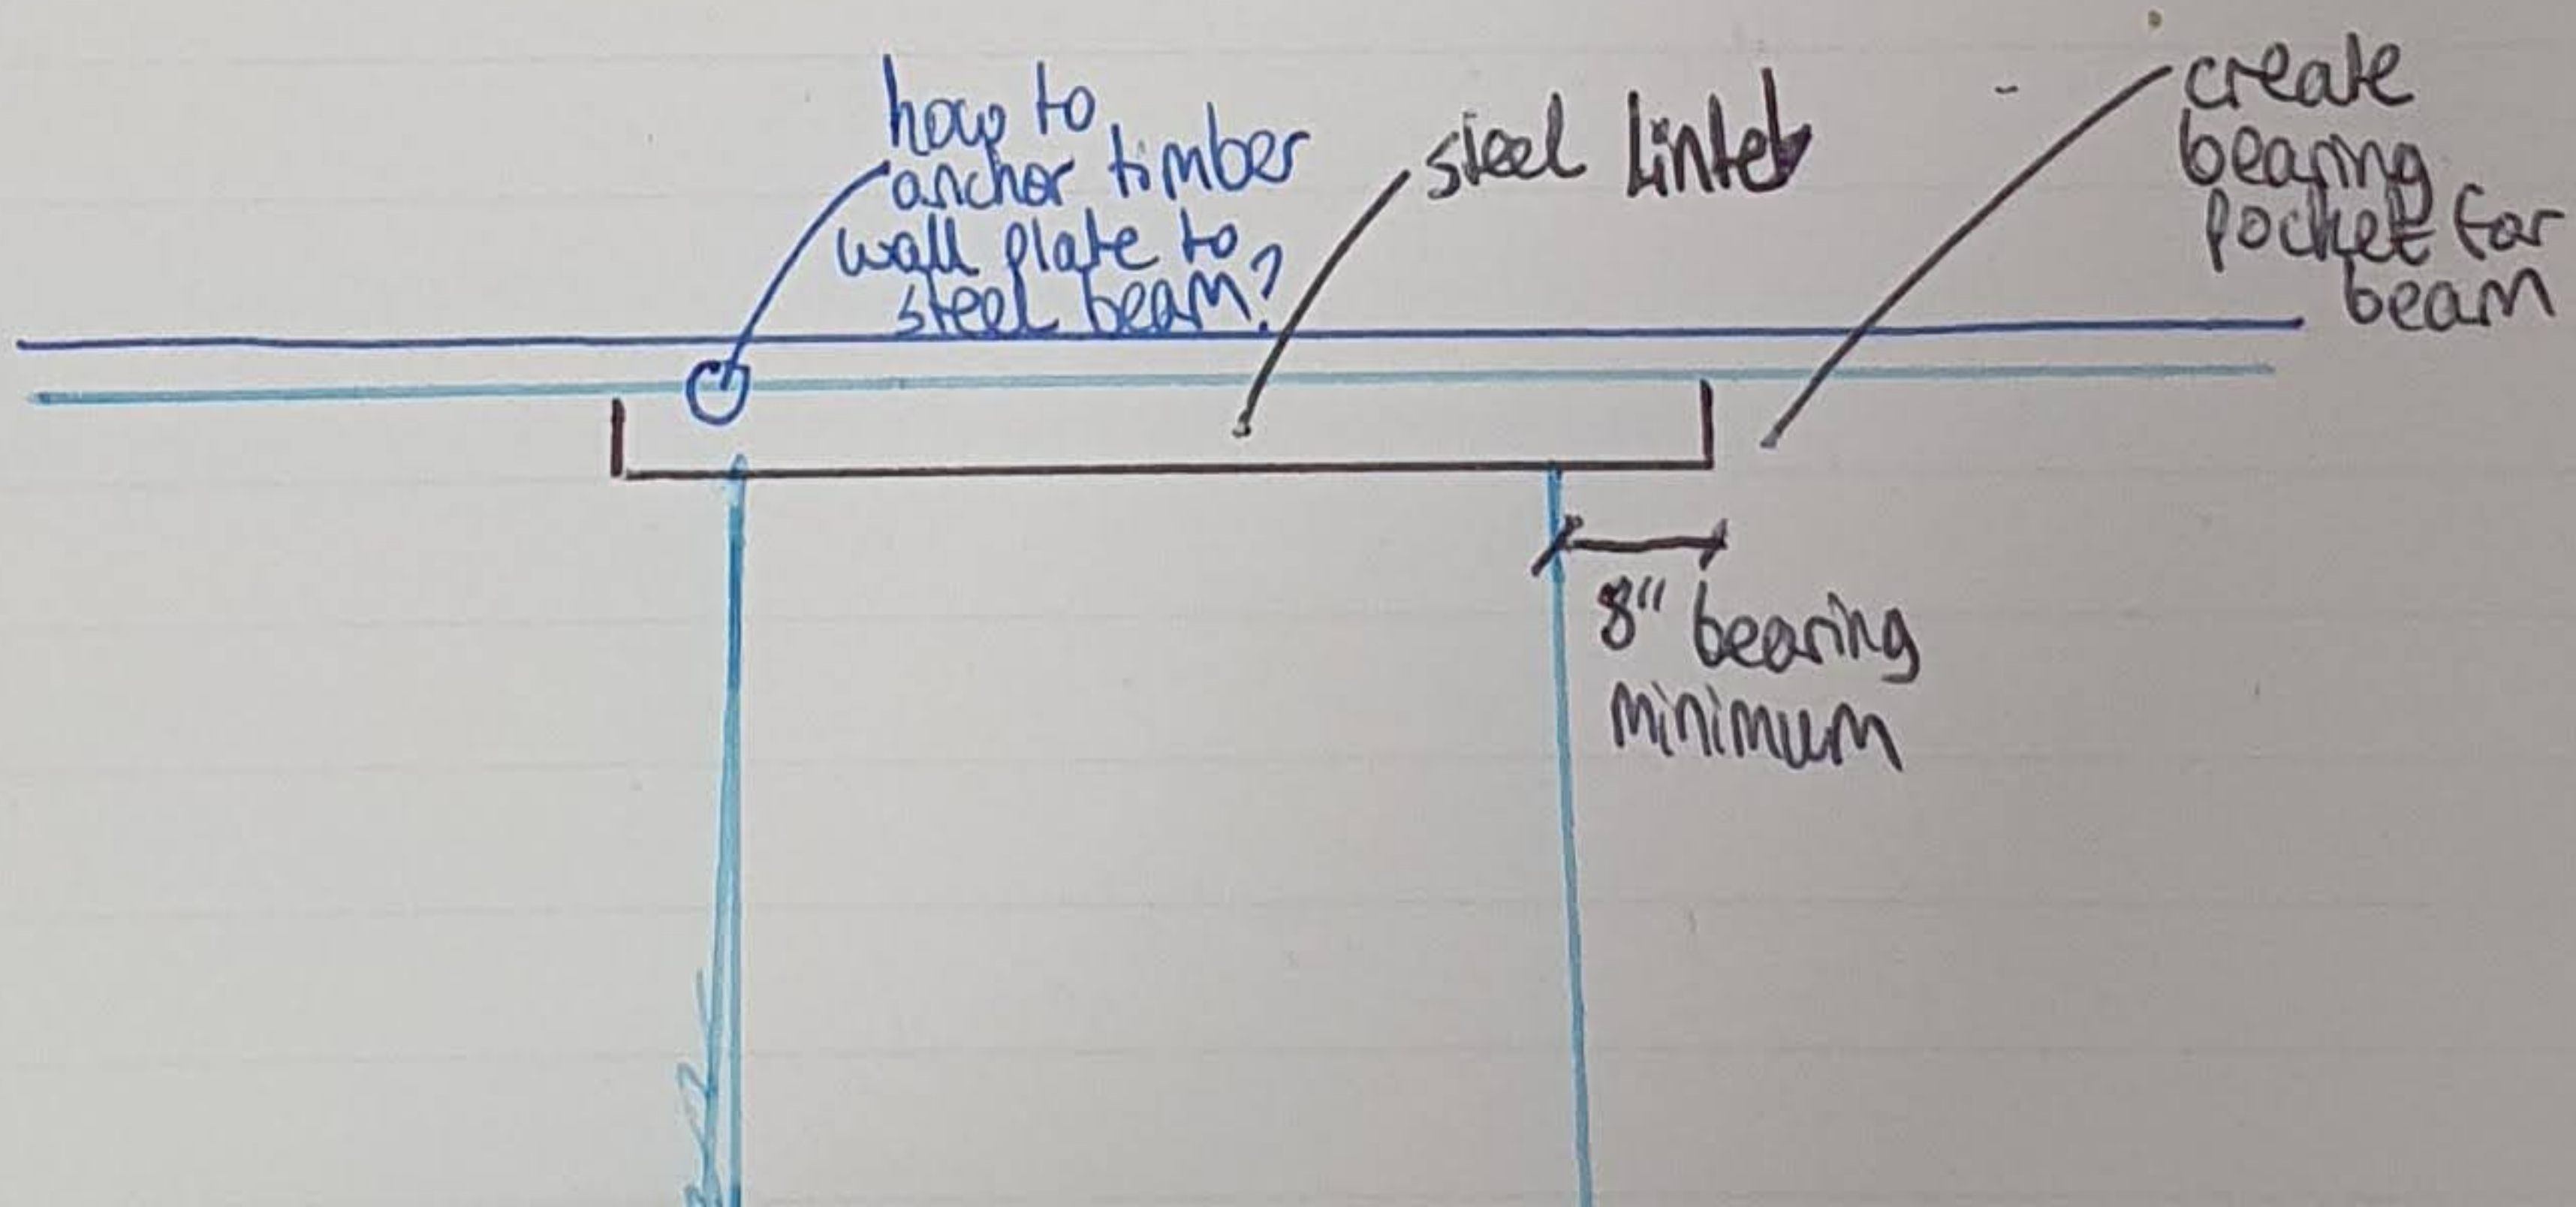 how to
anchor timber
wall plate to
steel beam?
steel lintel
create
bearing
pocket for
beam
8" bearing
minimum